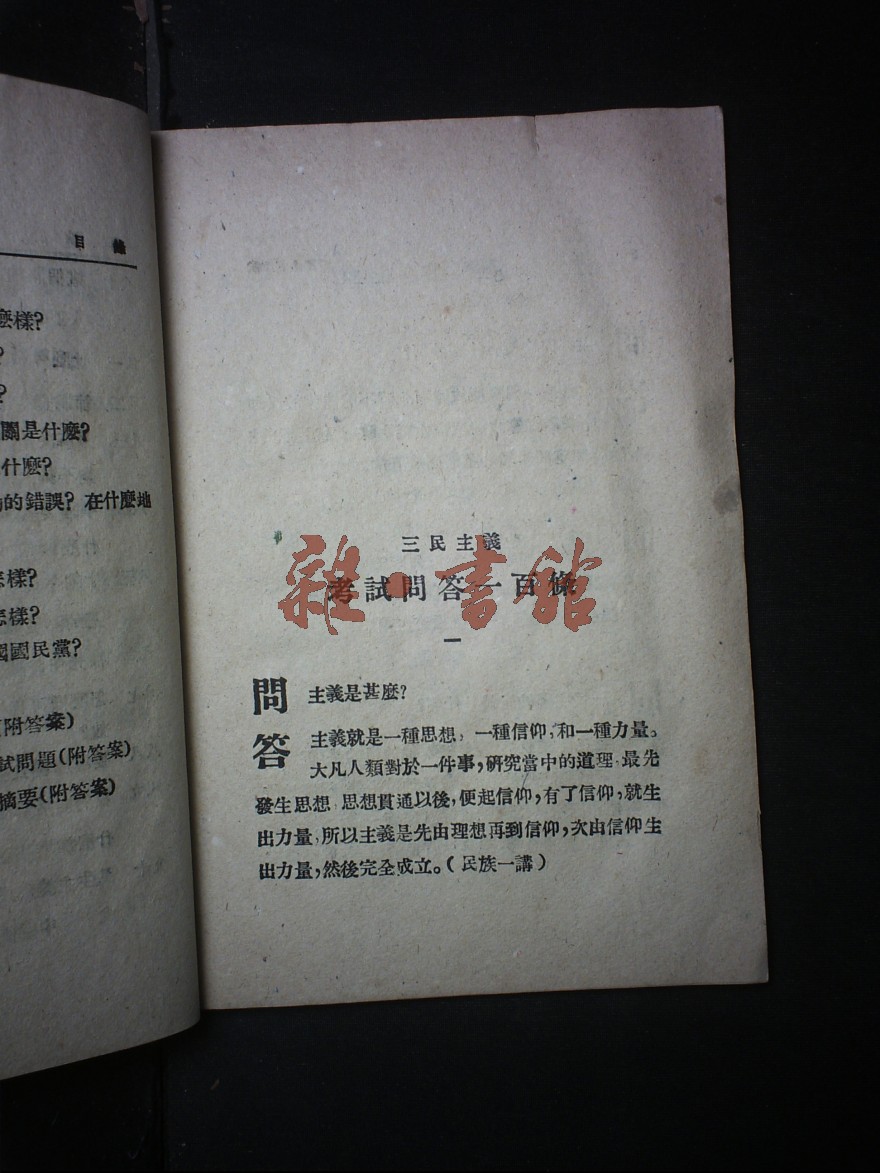 目錄
麼樣?
?
?
關是什麼?
什麼?
的錯誤? 在什麼地
怎樣?
怎樣?
國國民黨?
(附答案)
試問題(附答案)
摘要(附答案)
三民主義
考試問答一百條
雜·書館
一
問 主義是甚麼?
答 主義就是一種思想,一種信仰,和一種力量。
大凡人類對於一件事,研究當中的道理,最先
發生思想 思想貫通以後,便起信仰,有了信仰,就生
出力量,所以主義是先由理想再到信仰,次由信仰生
出力量,然後完全成立。(民族一講)